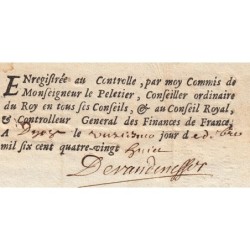 ENregistrée au Controlle, par moy Commis de
Monseigneur le Peletier, Conseiller ordinaire
du Roy en tous ses Conseils, & au Conseil Royal,
& Controlleur General des Finances de France,
A le jour de
mil six cent quatre-vingt huict
Devandenesse